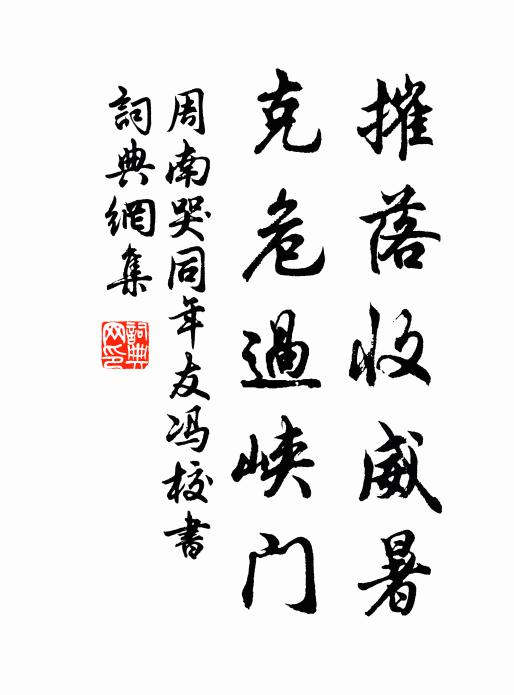 摧落收威暑
克危過峽门
周南哭同年友冯校書
詞典網集
詞典网印